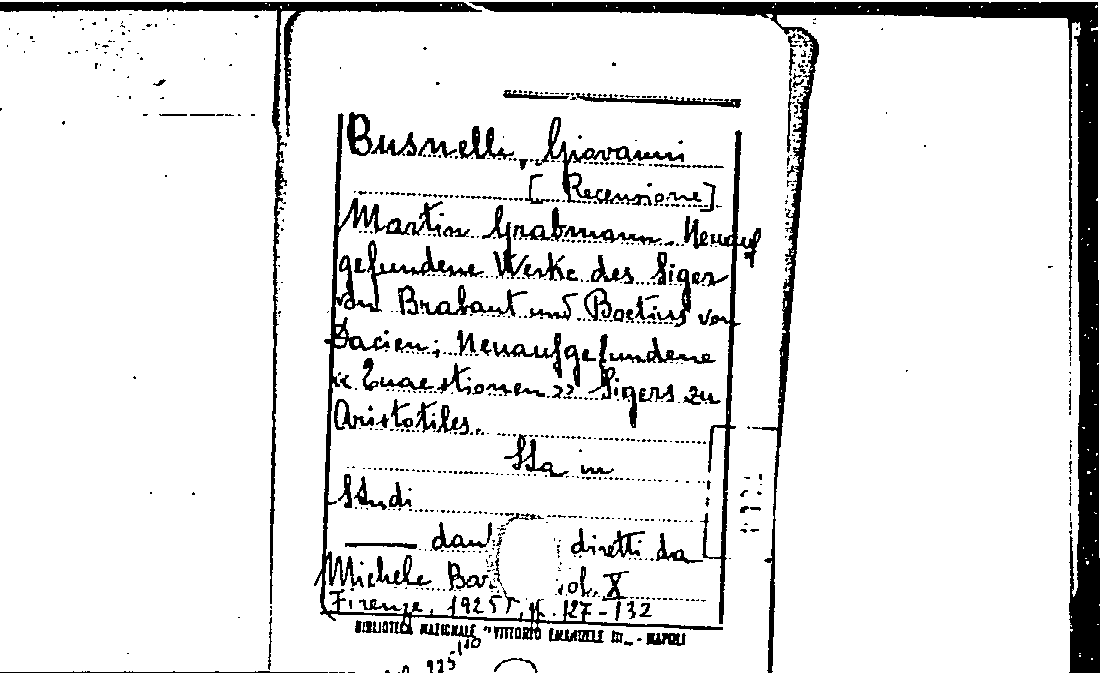 Busnelli, Giovanni
[Recensione]
Martin Grabmann. Neuauf
gefundene Werke des Siger
von Brabant und Boetius von
Dacien; Neuaufgefundene
« Quaestionen » Sigers zu
Aristotiles.
Sta in
Studi
diretti da
Michele X
Firenze, 1925, pp. 127-132
BIBLIOTECA NAZIONALE "VITTORIO EMANUELE III" - NAPOLI